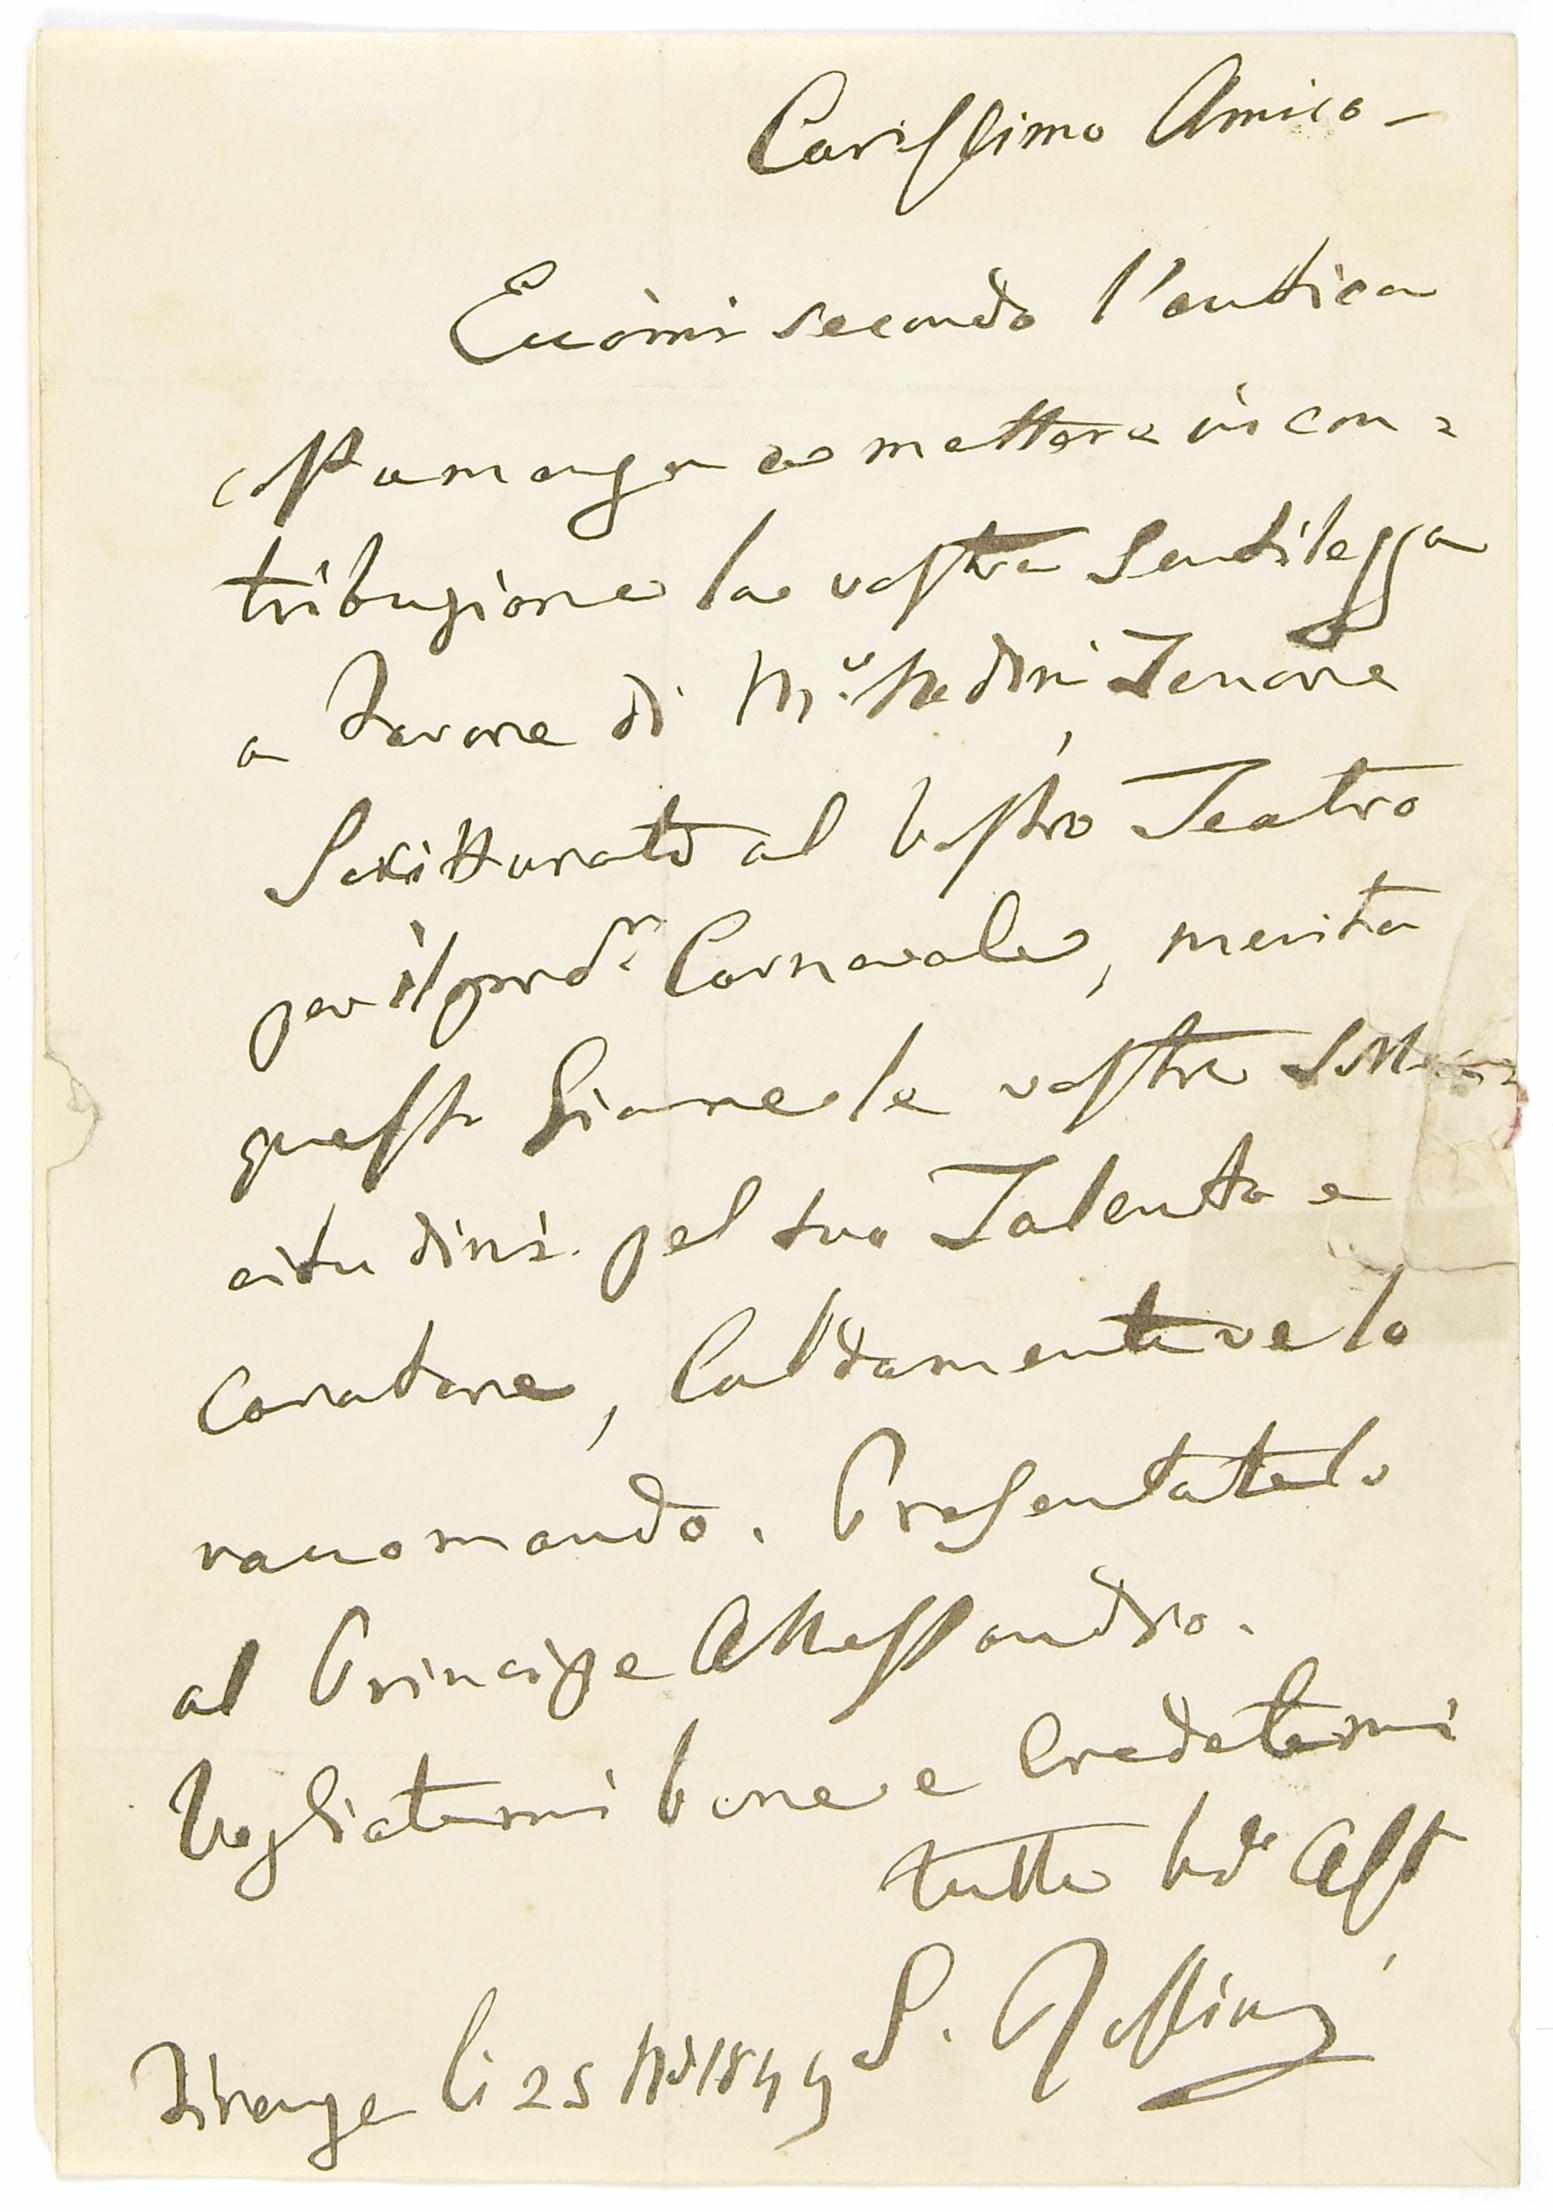 Carissimo Amico –
Eccomi secondo l'antica
costumanza a mettere in con=
tribuzione la vostra Gentilezza
a Favore di Mr. Tenore
Scritturato al Vostro Teatro
per il Carnevale, merita
questo Giovane le vostre
citudini pel suo Talento e
Caratere, Caldamente ve lo
raccomando. Presentatelo
al Principe Allessandro.
Vogliatemi bene e Credetemi
tutto Vo Aff
G. Rossini
Firenze li 25 1849